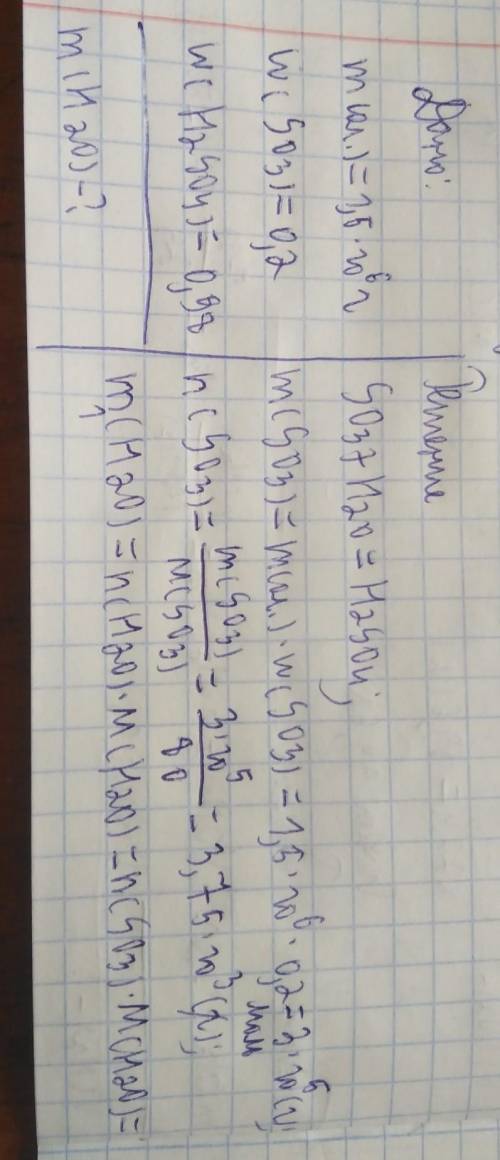 Дано:
m(ол.) = 1,5·10⁶ г
w(SO3) = 0,2
w(H2SO4) = 0,98
m(H2O) - ?
Решение
SO3 + H2O = H2SO4;
m(SO3) = m(ол.)·w(SO3) = 1,5·10⁶·0,2 = 3·10⁵(г);
n(SO3) = m(SO3) / M(SO3) = 3·10⁵ / 80 = 3,75·10³ (г); моль
m₁(H2O) = n(H2O)·M(H2O) = n(SO3)·M(H2O) =